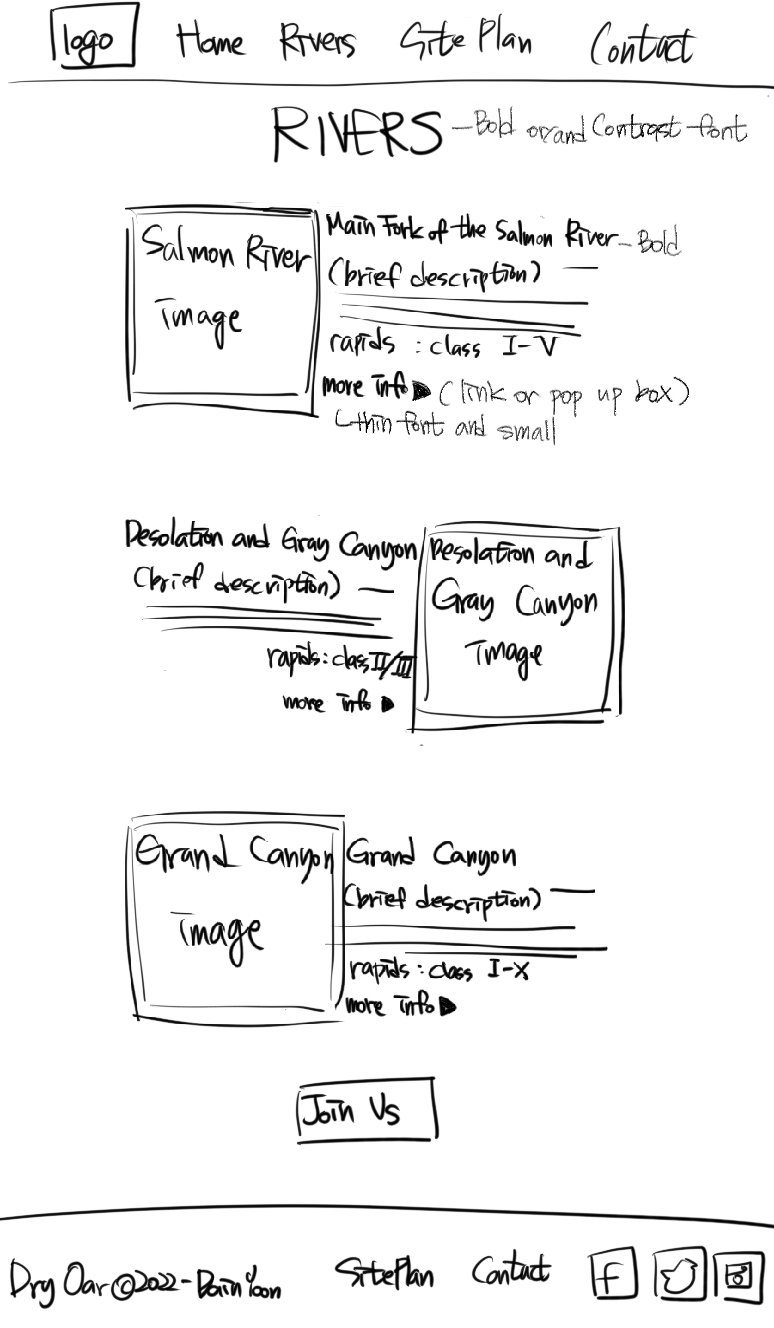 logo Home Rivers Site Plan Contact
RIVERS - Bold or/and Contrast font
Salmon River
Image
Main Fork of the Salmon River - Bold
(brief description)
rapids : class I-V
more info ▶ (link or pop up box)
(thin font and small
Desolation and Gray Canyon
(brief description)
rapids: class II/III
more info ▶
Desolation and
Gray Canyon
Image
Grand Canyon
Image
Grand Canyon
(brief description)
rapids: class I-X
more info ▶
Join Us
Dry Oar ©2022 - Dain Yoon Site Plan Contact f